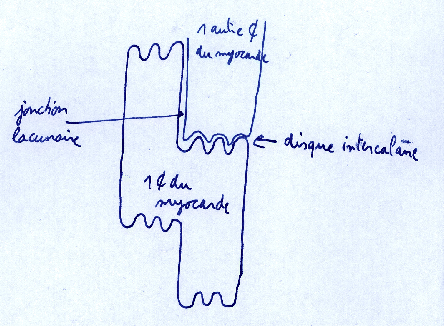 1 autre ¢
du myocarde
jonction
lacunaire
disque intercalaire
1 ¢ du
myocarde